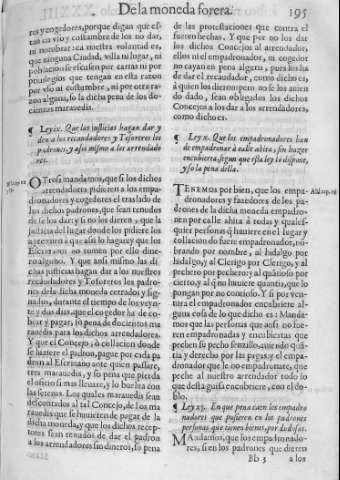 De la moneda forera.
195
res y cogedores, porque digan que es-
tan en vso y costumbre de los no dar,
ni nombrar: ca nuestra voluntad es,
que ninguna Ciudad, villa ni lugar, ni
poblacion se escusen por cartas ni por
priuilegios que tengan en esta razon
por vso ni costumbre, ni por otra ra-
zon alguna, so la dicha pena de los do-
maravedis.
¶ Ley Que las justicias hagan dar y
den a los recaudadores y Tesoreros los
padrones, y assi mismo a los arrendado
res.
Otrosi mandamos, que si los dichos
arrendadores pidieren a los empa-
dronadores y cogedores el traslado de
los dichos padrones, que sean tenudos
de se los dar: y si no los dieren, que la
justicia del lugar donde los pidiere los
a que assi lo hagan: y que los
Escriuanos no tomen por ello dine-
ro alguno. Y que assi mismo las di-
chas justicias hagan dar a los nuestros
recaudadores y Tesoreros los padro-
nes de la dicha moneda cerrados y sig-
nados, durante el tiempo de los veyn-
te y dos dias, que el cogedor ha de co-
brar y pagar, so pena de docientos ma
rauedis para los dichos arrendadores.
Y que el Concejo, ò collacion donde
se hiziere el padron, pague por cada pa
dron al Escriuano ante quien passare,
tres marauedis, y so pena que pierda
el oficio si mas lleuare, y lo buelua con
las setenas. Los quales marauedis sean
descontados al tal Concejo, de los ma
rauedis que se huuieren de pagar de la
dicha moneda, y que los dichos recep-
tores sean tenudos de dar el padron
a los arrendadores sin dineros, so pena
de las protestaciones que contra el
fueren hechas. Y que por no los dar
los dichos Concejos al arrendador,
ellos ni el empadronador, ni cogedor
no cayan en pena alguna, pues los ha
de dar el recaudador, como dicho es,
à quien los dieron: pero no se los auien
do dado, sean obligados los dichos
Concejos a los dar a los arrendadores,
como dicho es.
¶ Ley Que los empadronadores han
de empadronar à calle ahita, sin hazer
encubierta, segun que esta ley lo dispone,
y so la pena della.
Tenemos por bien, que los empa-
dronadores y fazedores de los pa-
drones de la dicha moneda empadro-
nen por calle ahita à todas y quales-
quier personas q̃ huuiere en el lugar y
collacion do fuere empadronador, nõ-
brando por nombre, al hidalgo por
hidalgo, y al Clerigo por Clerigo, y al
pechero por pechero: y al quãtioso por
cierto, y al q̃ no huuiere quantia, que lo
pongan por no contioso. Y si por ven-
tura el empadronador encubriere al-
guna cosa de lo que dicho es: Manda-
mos que las personas que assi no fue-
ren empadronadas y encubiertas que
pechen su pecho senzillo, auiendo quã-
tia y derecho por las pagar, y el empa-
dronador que le no empadronare, que
peche al nuestro arrendador todo lo
que desta guisa encubriere, con el do-
blo.
¶ Ley En que pena caen los empadro
nadores que pusieren en los padrones
personas que tienen bienes, por dudosas.
Mandamos, que los empadronado-
res, si en los padrones que dieren
Bb 3
a los